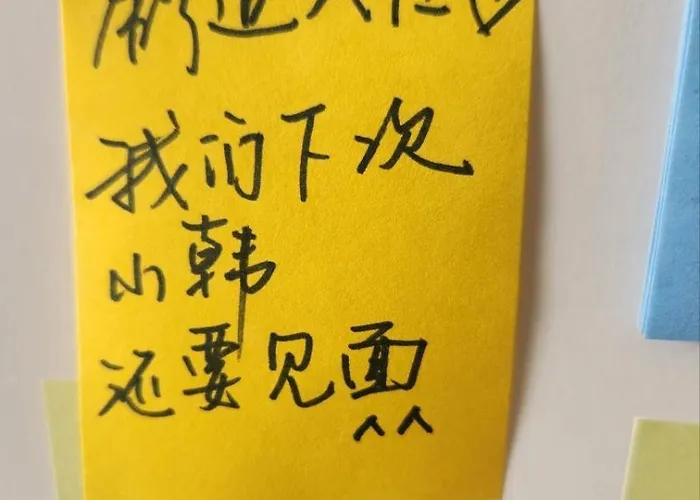 我的下次
小韩
还要见面
^^